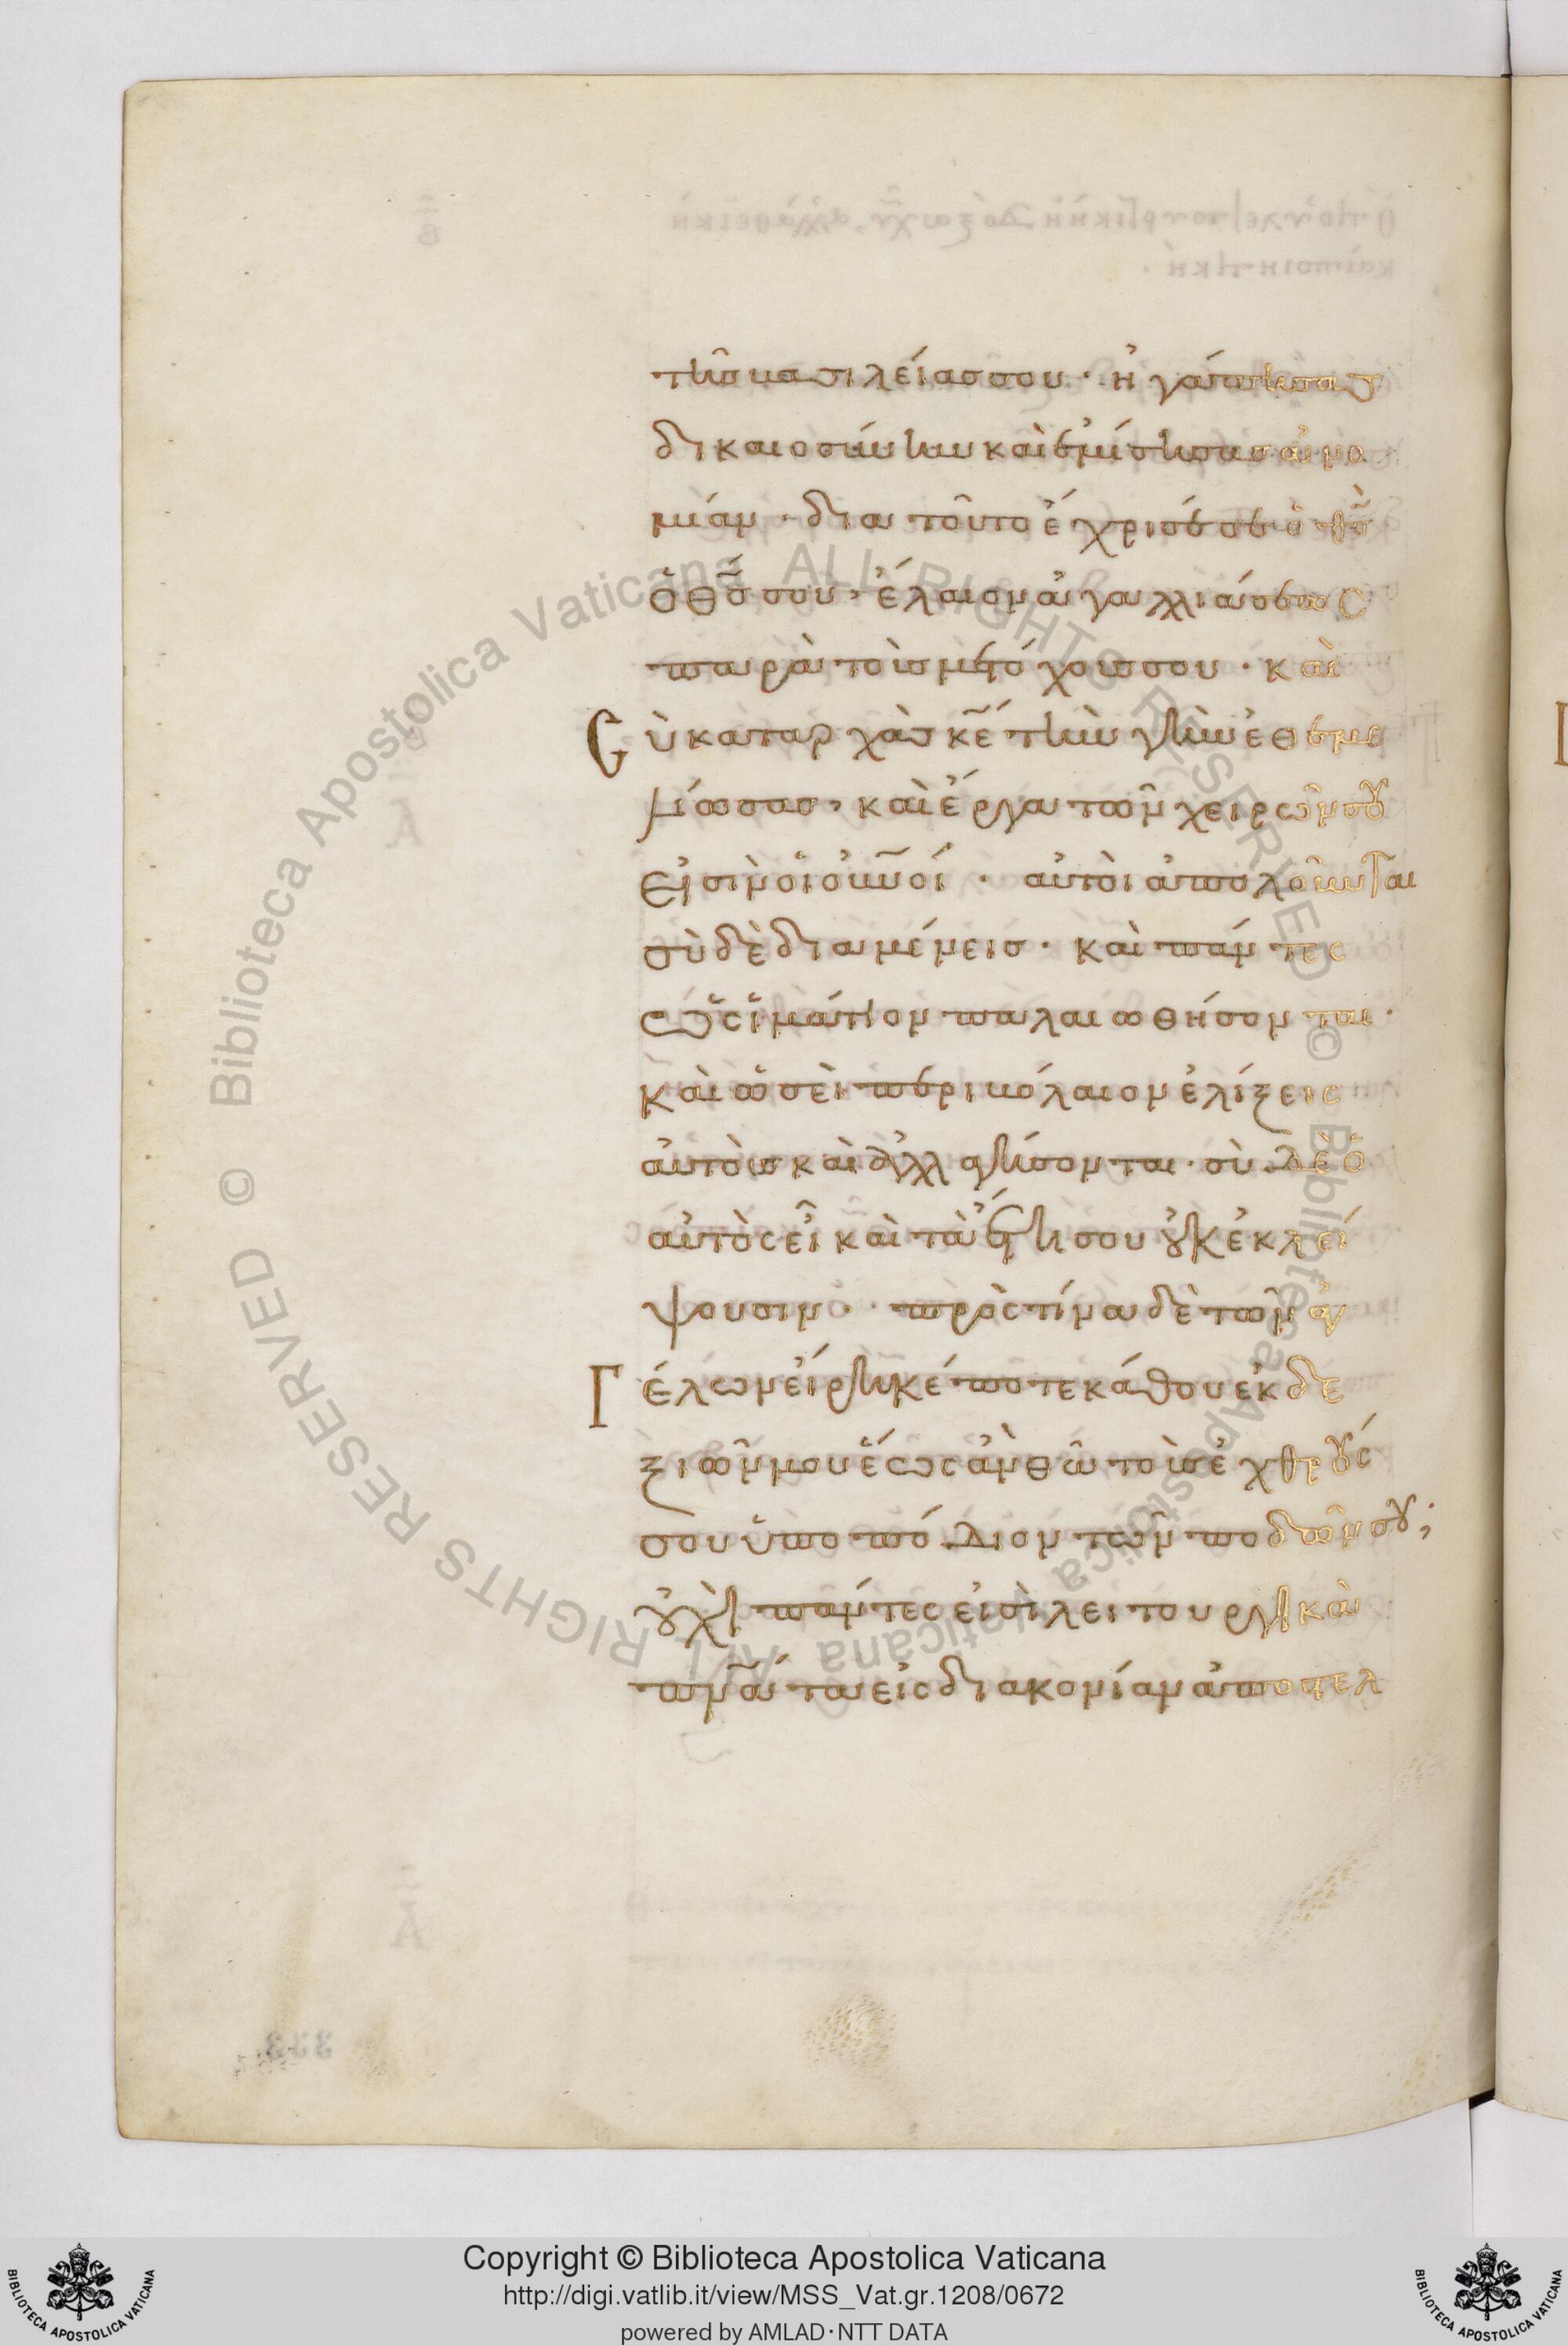 τῆς βασιλείας σου · ἠγάπησας
δικαιοσύνην καὶ ἐμίσησας ἀνο
μίαν · δια τοῦτο ἔχρισέ σε ὁ θς̃
ὁ θς̃ σου, ἔλαιον ἀγαλλιάσεως
παρὰ τοὺς μετόχους σου · καὶ
Cὺ κατ αρχὰς κε̃ τὴν γῆν ἐθεμε
λίωσας, καὶ ἔργα τῶν χειρῶν σου
εἰσὶν οἱ οὐνοί · αὐτοὶ ἀπολοῦνται
σὺ δὲ διαμένεις · καὶ πάντες
ὡς ἱμάτιον παλαιωθήσονται ·
καὶ ὡσεὶ περιβόλαιον ἑλίξεις
αὐτοὺς καὶ ἀλλαγήσονται · σὺ δὲ ὁ
αὐτὸς εἶ καὶ τὰ ἔτη σου οὐκ ἐκλεί
ψουσιν · πρὸς τίνα δὲ τῶν ἀγ
Γέλων εἴρηκέ ποτε κάθου εκ δε
ξιῶν μου ἕως ἂν θῶ τοὺς ἐχθρούς
σου ὑποπόδιον τῶν ποδῶν σου;
οὐχὶ πάντες εἰσὶ λειτουργικὰ
πνα̃τα εἰς διακονίαν ἀποστελ
Copyright © Biblioteca Apostolica Vaticana
http://digi.vatlib.it/view/MSS_Vat.gr.1208/0672
powered by AMLAD·NTT DATA
BIBLIOTECA APOSTOLICA VATICANA
BIBLIOTECA APOSTOLICA VATICANA
© Biblioteca Apostolica Vaticana ALL RIGHTS RESERVED © Biblioteca Apostolica Vaticana ALL RIGHTS RESERVED